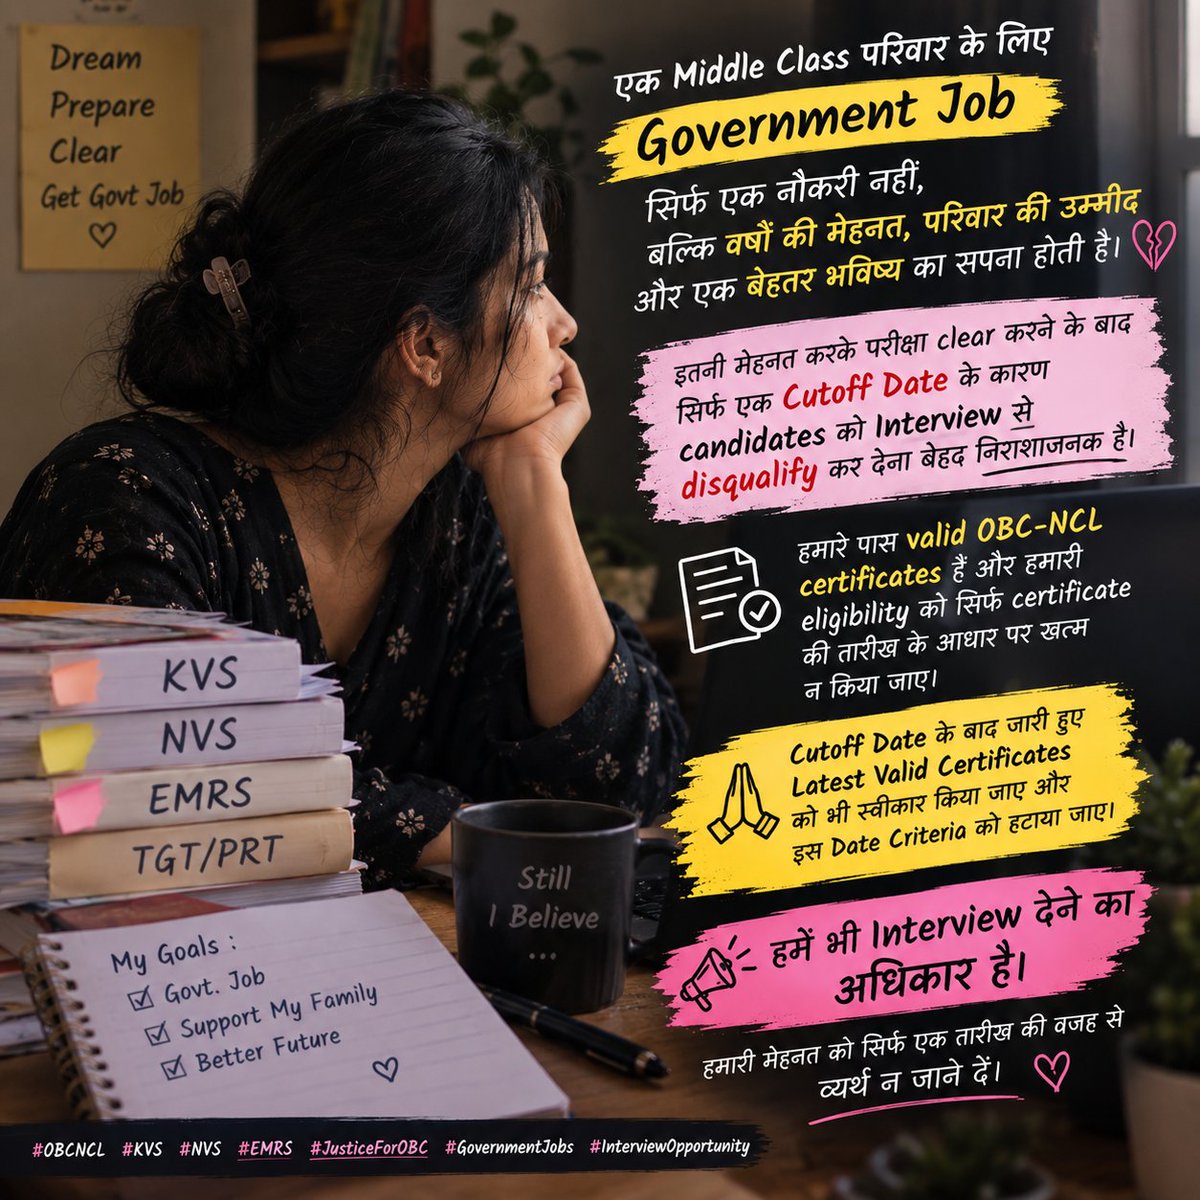 Dream
Prepare
Clear
Get Govt Job
एक Middle Class परिवार के लिए
Government Job
सिर्फ एक नौकरी नहीं,
बल्कि वर्षों की मेहनत, परिवार की उम्मीद
और एक बेहतर भविष्य का सपना होती है।
इतनी मेहनत करके परीक्षा clear करने के बाद
सिर्फ एक Cutoff Date के कारण
candidates को Interview से
disqualify कर देना बेहद निराशाजनक है।
हमारे पास valid OBC-NCL
certificates हैं और हमारी
eligibility को सिर्फ certificate
की तारीख के आधार पर खत्म
न किया जाए।
Cutoff Date के बाद जारी हुए
Latest Valid Certificates
को भी स्वीकार किया जाए और
इस Date Criteria को हटाया जाए।
हमें भी Interview देने का
अधिकार है।
हमारी मेहनत को सिर्फ एक तारीख की वजह से
व्यर्थ न जाने दें।
KVS
NVS
EMRS
TGT/PRT
Still
I Believe
...
My Goals :
Govt. Job
Support My Family
Better Future
#OBCNCL #KVS #NVS #EMRS #JusticeForOBC #GovernmentJobs #InterviewOpportunity